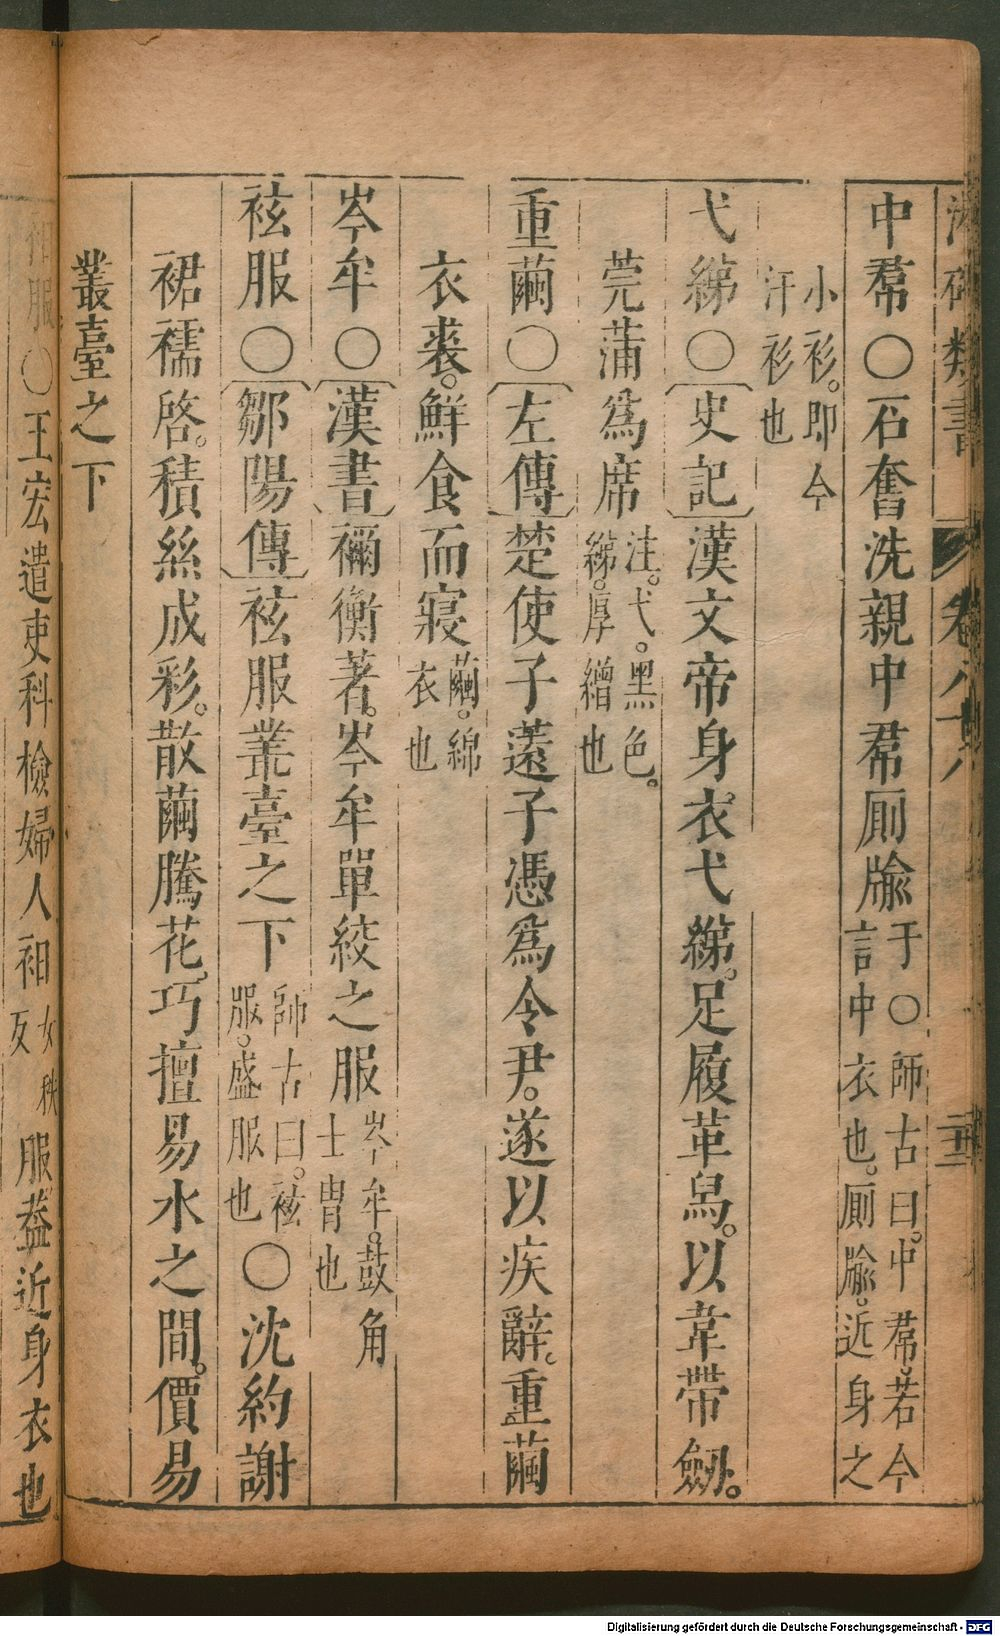 類書 卷
中帬〇石奮洗親中帬厠牏于〇師古曰。中帬。若今言中衣也。厠牏。近身之
小衫。即今汗衫也
弋綈〇〔史記〕漢文帝身衣弋綈。足履革舄。以韋帶劒。
莞蒲爲席注。弋。黑色。綈。厚繒也
重繭〇〔左傳〕楚使子薳子憑爲令尹。遂以疾辭。重繭
衣裘。鮮食而寢繭。綿衣也
岑牟〇〔漢書〕禰衡著。岑牟單絞之服岑牟。鼓角士胄也
袨服〇〔鄒陽傳〕袨服叢臺之下師古曰。袨服。盛服也〇沈約謝
裙襦啓。積絲成彩。散繭騰花。巧擅易水之間。價昜
叢臺之下
衵服〇王宏遣吏科檢婦人衵女秩反服葢近身衣也
Digitalisierung gefördert durch die Deutsche Forschungsgemeinschaft - DFG